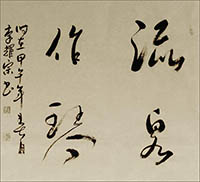 流泉
作琴
时在甲午年春月
李耀宗书